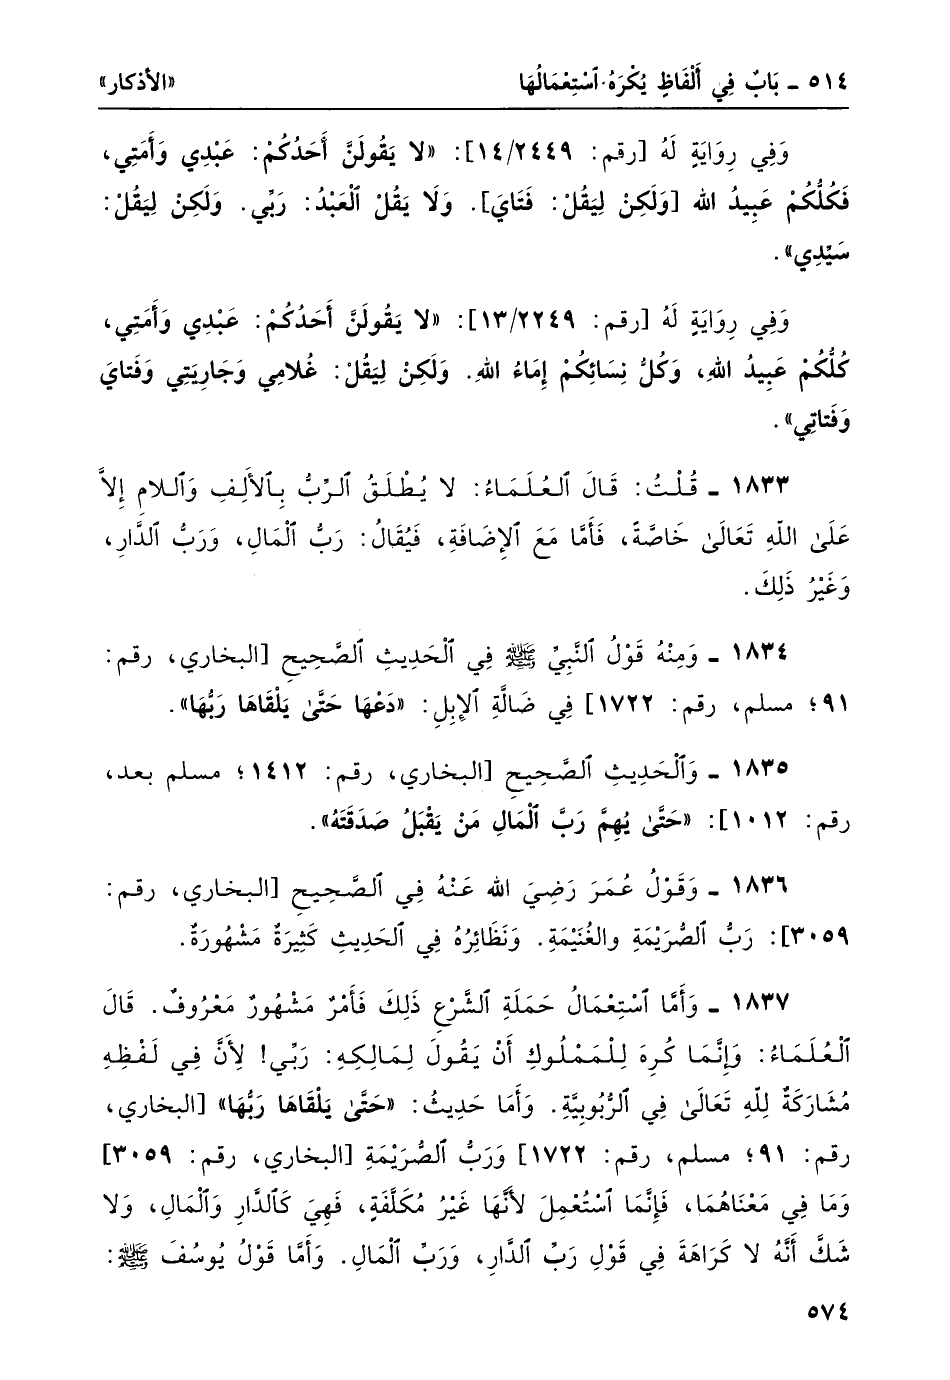 ٥١٤ ـ بَابٌ فِي أَلْفَاظٍ يُكْرَهُ ٱسْتِعْمَالُهَا «الأذكار»
وَفِي رِوَايَةٍ لَهُ [رقم: ١٤/٢٤٤٩]: «لا يَقُولَنَّ أَحَدُكُمْ: عَبْدِي وَأَمَتِي،
فَكُلُّكُمْ عَبِيدُ الله [وَلَكِنْ لِيَقُلْ: فَتَايَ]. وَلَا يَقُلْ ٱلْعَبْدُ: رَبِّي. وَلَكِنْ لِيَقُلْ:
سَيِّدِي».
وَفِي رِوَايَةٍ لَهُ [رقم: ١٣/٢٢٤٩]: «لا يَقُولَنَّ أَحَدُكُمْ: عَبْدِي وَأَمَتِي،
كُلُّكُمْ عَبِيدُ اللهِ، وَكُلُّ نِسَائِكُمْ إِمَاءُ اللهِ. وَلَكِنْ لِيَقُلْ: غُلامِي وَجَارِيَتِي وَفَتايَ
وَفَتاتِي».
١٨٣٣ ـ قُلْتُ: قَالَ ٱلعُلَمَاءُ: لا يُطْلَقُ ٱلرِّبُّ بِٱلأَلِفِ وَٱللامِ إِلاَّ
عَلَىٰ اللّهِ تَعَالَىٰ خَاصَّةً، فَأَمَّا مَعَ ٱلإِضَافَةِ، فَيُقَالُ: رَبُّ ٱلْمَالِ، وَرَبُّ ٱلدَّارِ،
وَغَيْرُ ذَلِكَ.
١٨٣٤ ـ وَمِنْهُ قَوْلُ ٱلنَّبِيِّ ﷺ فِي ٱلْحَدِيثِ ٱلصَّحِيحِ [البخاري، رقم:
٩١؛ مسلم، رقم: ١٧٢٢] فِي ضَالَّةِ ٱلإِبِلِ: «دَعْهَا حَتَّىٰ يَلْقَاهَا رَبُّهَا».
١٨٣٥ ـ وَٱلْحَدِيثِ ٱلصَّحِيحِ [البخاري، رقم: ١٤١٢؛ مسلم بعد،
رقم: ١٠١٢]: «حَتَّىٰ يُهِمَّ رَبَّ ٱلْمَالِ مَنْ يَقْبَلُ صَدَقَتَهُ».
١٨٣٦ ـ وَقَوْلُ عُمَرَ رَضِيَ الله عَنْهُ فِي ٱلصَّحِيحِ [البخاري، رقم:
٣٠٥٩]: رَبُّ ٱلصُّرَيْمَةِ والغُنَيْمَةِ. وَنَظَائِرُهُ فِي ٱلحَدِيثِ كَثِيرَةٌ مَشْهُورَةٌ.
١٨٣٧ ـ وَأَمَّا ٱسْتِعْمَالُ حَمَلَةِ ٱلشَّرْعِ ذَلِكَ فَأَمْرٌ مَشْهُورٌ مَعْرُوفٌ. قَالَ
ٱلْعُلَمَاءُ: وَإِنَّمَا كُرِهَ لِلْمَمْلُوكِ أَنْ يَقُولَ لِمَالِكِهِ: رَبِّي! لأَنَّ فِي لَفْظِهِ
مُشَارَكَةٌ لِلّهِ تَعَالَىٰ فِي ٱلرُّبُوبِيَّةِ. وَأَمَا حَدِيثُ: «حَتَّىٰ يَلْقَاهَا رَبُّهَا» [البخاري،
رقم: ٩١؛ مسلم، رقم: ١٧٢٢] وَرَبُّ ٱلصُّرَيْمَةِ [البخاري، رقم: ٣٠٥٩]
وَمَا فِي مَعْنَاهُمَا، فَإِنَّمَا ٱسْتُعْمِلَ لأَنَّهَا غَيْرُ مُكَلَّفَةٍ، فَهِيَ كَٱلدَّارِ وَٱلْمَالِ، وَلا
شَكَّ أَنَّهُ لا كَرَاهَةَ فِي قَوْلِ رَبِّ ٱلدَّارِ، وَرَبِّ ٱلْمَالِ. وَأَمَّا قَوْلُ يُوسُفَ ﷺ:
٥٧٤